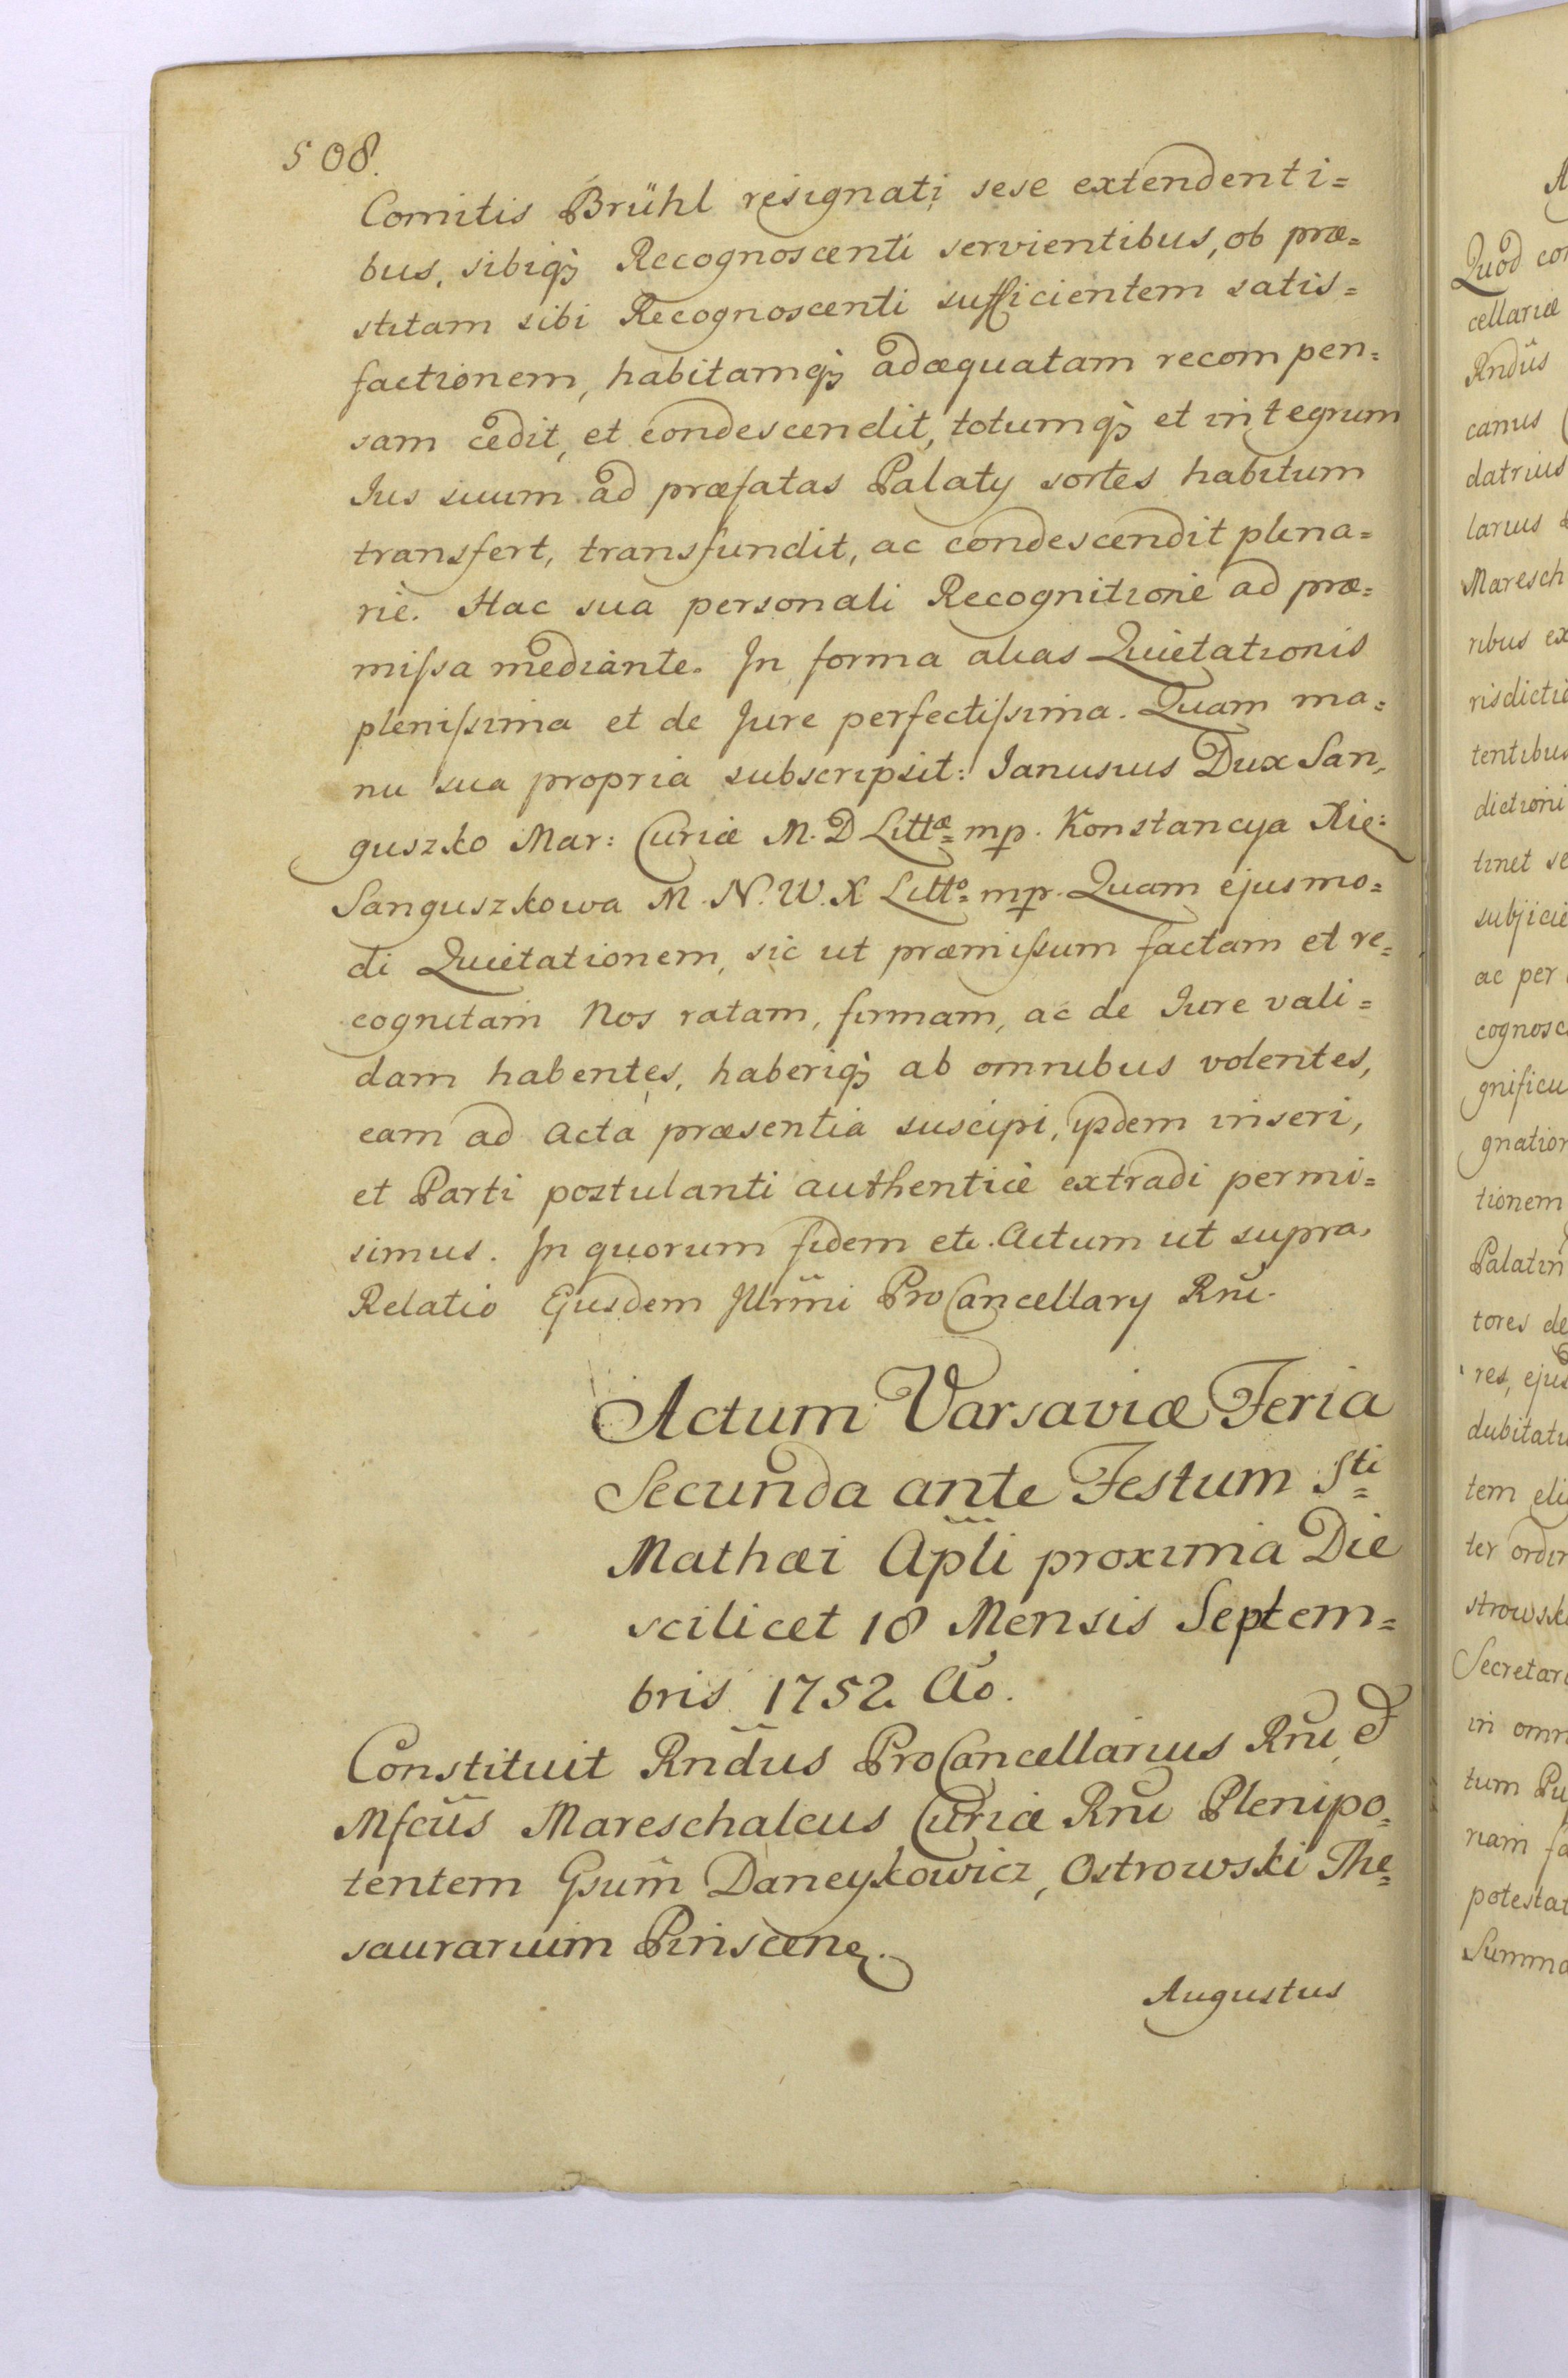 508.
Comitis Brühl resignati sese extendenti=
bus, sibiq; Recognoscenti servientibus, ob præ=
stitam sibi Recognoscenti sufficientem satis=
factionem, habitamq; adæquatam recompen=
sam cedit, et condescendit, totumq; et integrum
Jus suum ad præfatas Palatÿ sortes habitum
transfert, transfundit, ac condescendit plena=
riè. Hac sua personali Recognitione ad præ=
miſsa mediante. In forma alias Quietationis
pleniſsima et de Jure perfectiſsima. Quam ma=
nu sua propria subscripsit: Janusius Dux San=
guszko Mar: Curiæ M. D Littæ mp. Konstancya Xie:
Sanguszkowa M. N. W. X Litto mp. Quam ejusmo=
di Quietationem, sic ut præmiſsum factam et re=
cognitam Nos ratam, firmam, ac de Jure vali=
dam habentes, haberiq; ab omnibus volentes,
eam ad Acta præsentia suscipi, ÿsdem inseri,
et Parti postulanti authenticè extradi permi=
simus. In quorum fidem etc. Actum ut supra.
Relatio Ejusdem Jllrmi ProCancellarÿ Rni.
Actum Varsaviæ Feria
Secunda ante Festum Sti
Mathæi Apli proxima Die
scilicet 18 Mensis Septem=
bris 1752 Ao.
Constituit Rndus ProCancellarius Rni, et
Mfcus Mareschalcus Curiæ Rni Plenipo=
tentem Gsum Daneykowicz, Ostrowski The=
saurarium Pinscen.
Augustus
Quod con
cellariæ
Rndus
canus
datrius
larius
Maresch
ribus ex
risdictio
tentibus
dictioni
tinet se
subjicie
ac per
cognosc
gnificu
gnation
tionem
Palatin
tores de
res, ejus
dubitatu
tem eli
ter ordin
strowsk
Secretar
in omn
tum Pu
riam fa
potestat
Summa